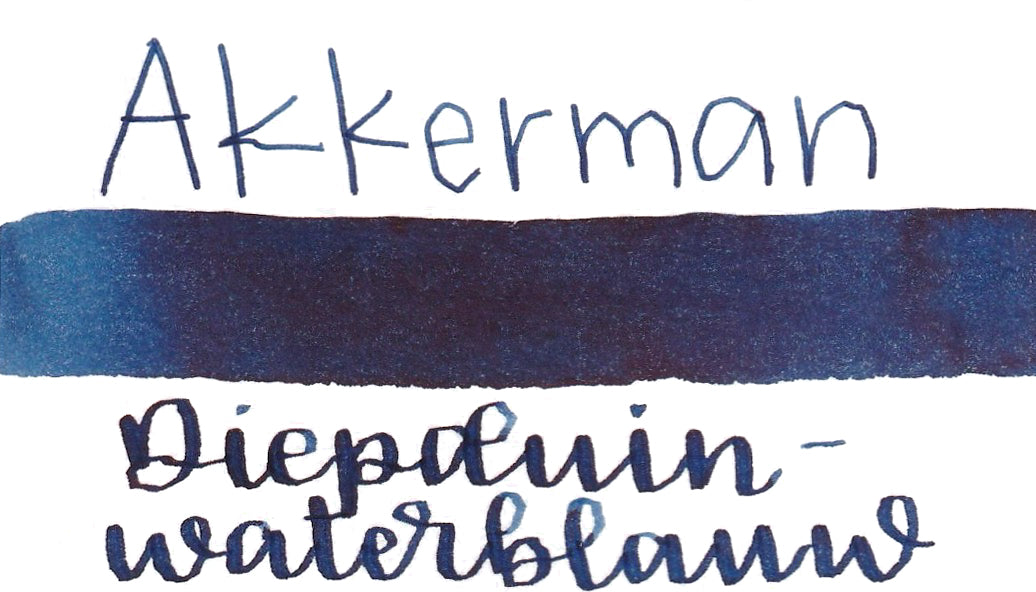 Akkerman
Diepduin-
waterblauw